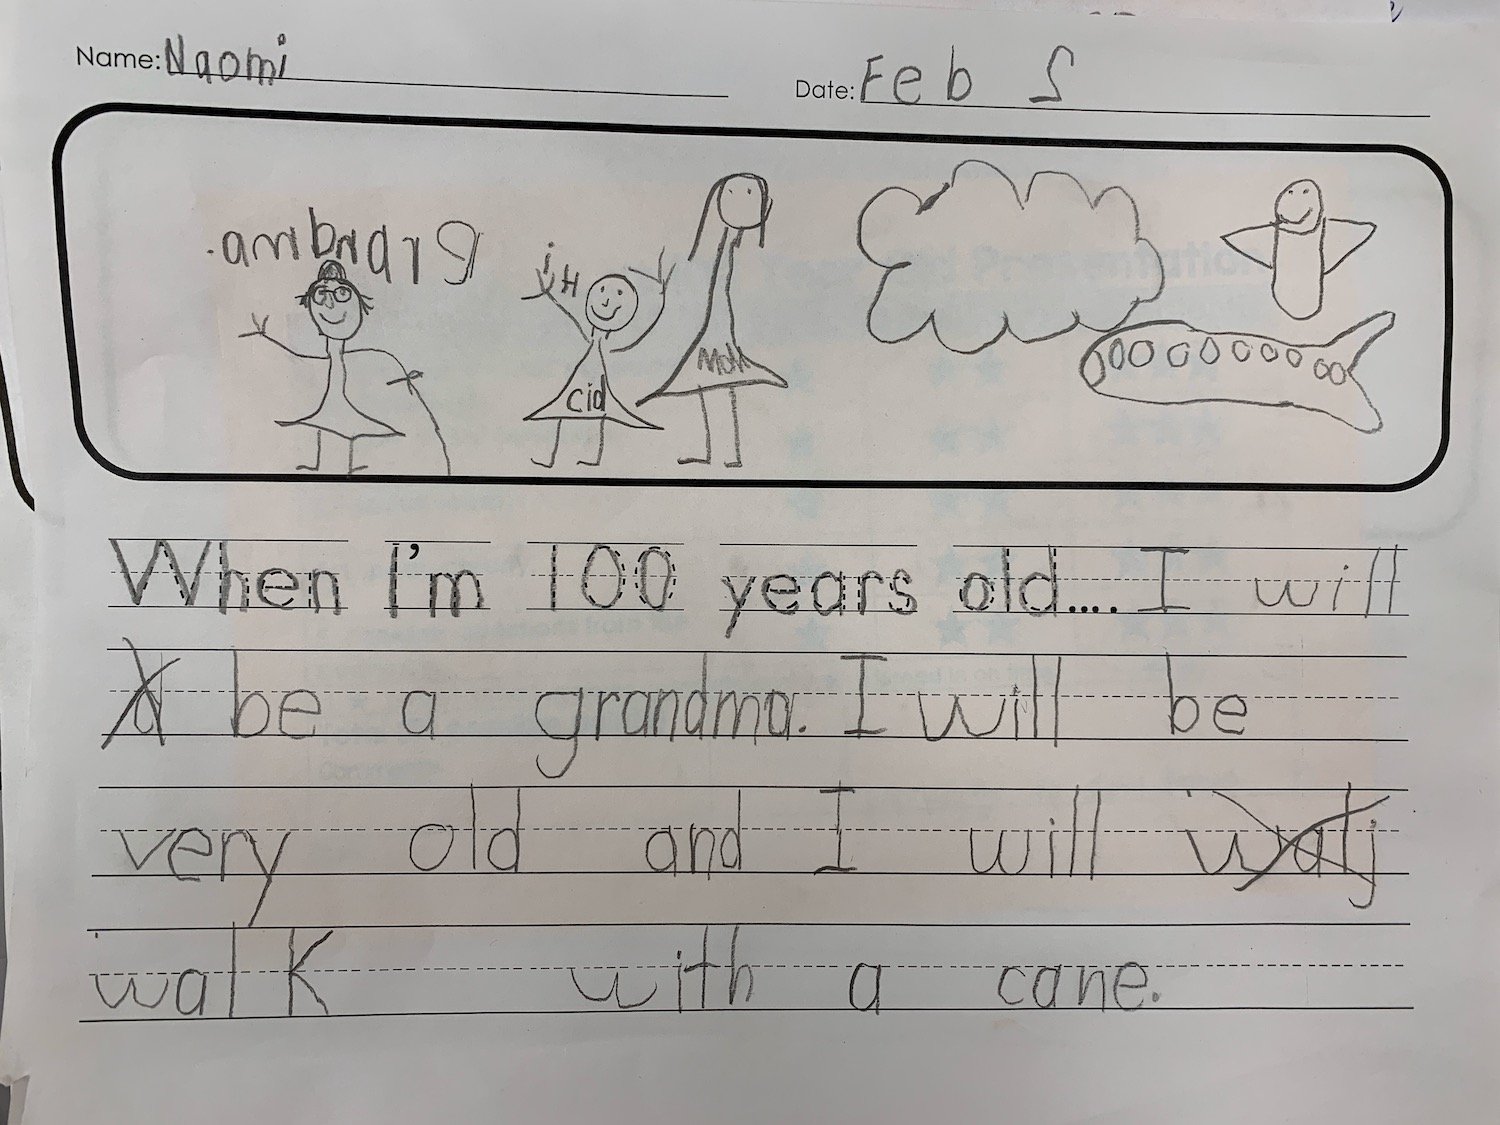 Name: Naomi
Date: Feb 5
Grandma.
Hi
cid
Mom
When I'm 100 years old.... I will
be a grandma. I will be
very old and I will
walk with a cane.